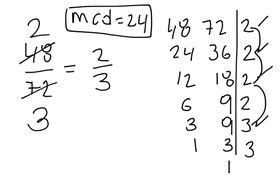 mcd=24
2
48/72 = 2/3
3
48 72 | 2
24 36 | 2
12 18 | 2
6 9 | 2
3 9 | 3
1 3 | 3
1